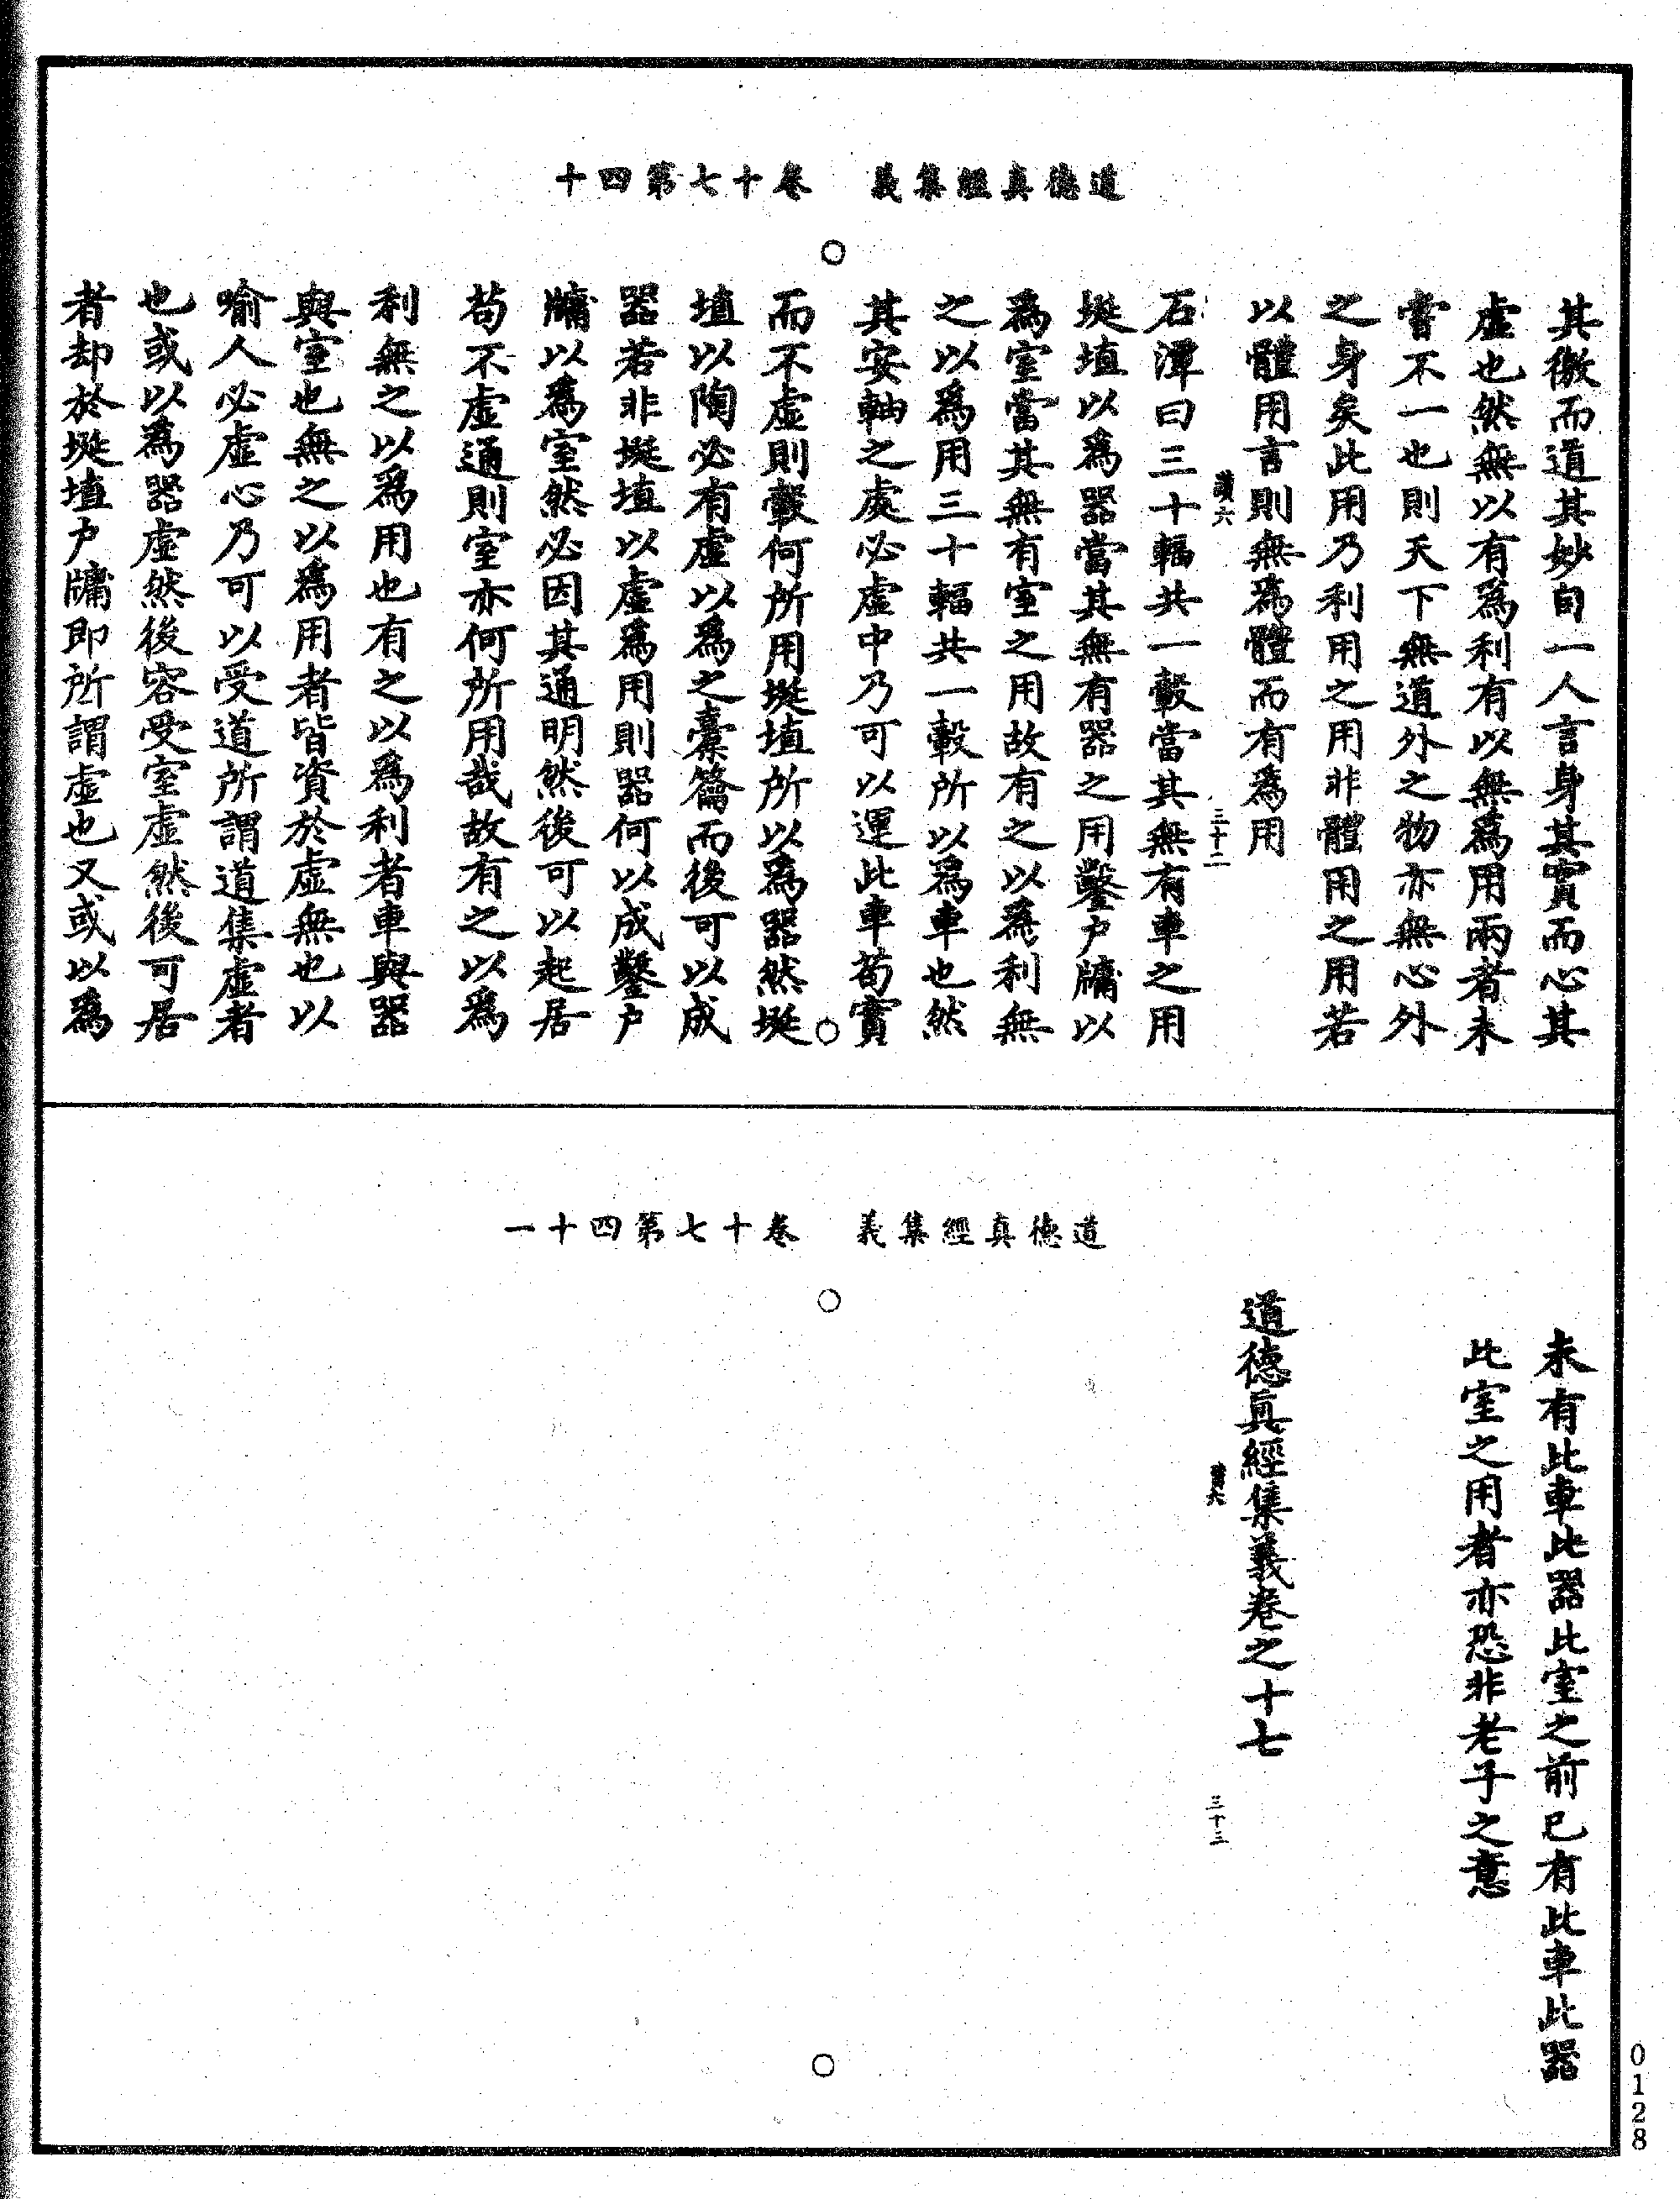 道德真經集義　卷十七第四十
其徼而道其妙自一人言身其實而心其
虛也然無以有爲利有以無爲用兩者未
嘗不一也則天下無道外之物亦無心外
之身矣此用乃利用之用非體用之用若
以體用言則無爲體而有爲用
三十二
石潭曰三十輻共一轂當其無有車之用
埏埴以爲器當其無有器之用鑿戶牖以
爲室當其無有室之用故有之以爲利無
之以爲用三十輻共一轂所以爲車也然
其安軸之處必虛中乃可以運此車苟實
而不虛則轂何所用埏埴所以爲器然埏
埴以陶必有虛以爲之橐籥而後可以成
器若非埏埴以虛爲用則器何以成鑿戶
牖以爲室然必因其通明然後可以起居
苟不虛通則室亦何所用哉故有之以爲
利無之以爲用也有之以爲利者車與器
與室也無之以爲用者皆資於虛無也以
喻人必虛心乃可以受道所謂道集虛者
也或以爲器虛然後容受室虛然後可居
者却於埏埴戶牖即所謂虛也又或以爲
道德真經集義　卷十七第四十一
未有此車此器此室之前已有此車此器
此室之用者亦恐非老子之意
道德真經集義卷之十七
三十三
0128